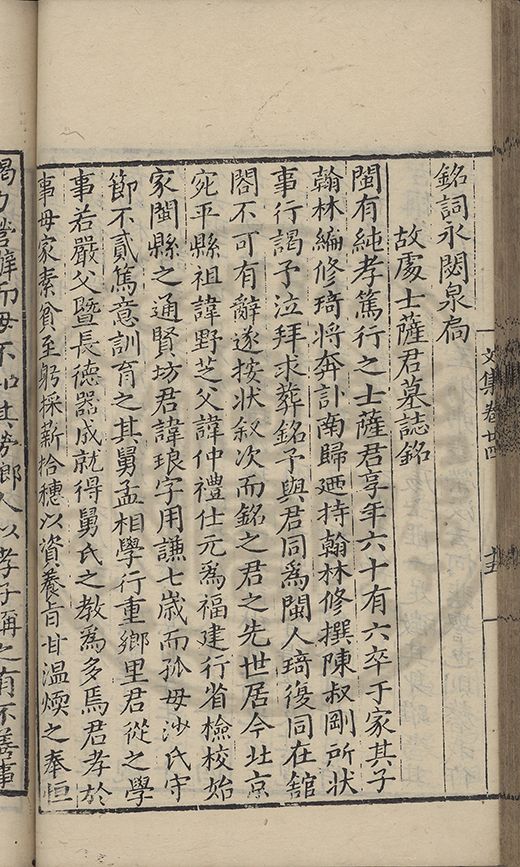 銘詞永閟泉扃
故處士薩君墓誌銘
閩有純孝篤行之士薩君享年六十有六卒于家其子
翰林編修琦將奔訃南歸廼持翰林修撰陳叔剛所狀
事行謁予泣拜求葬銘予與君同為閩人琦復同在舘
閣不可有辭遂按狀叙次而銘之君之先世居今北京
宛平縣祖諱野芝父諱仲禮仕元爲福建行省檢校始
家閩縣之通賢坊君諱琅字用謙七歲而孤毋沙氏守
節不貳篤意訓育之其舅孟相學行重鄉里君從之學
事若嚴父暨長德器成就得舅氏之教為多焉君孝於
事母家素貧至躬採薪拾穗以資養旨甘溫煗之奉恒
竭力營辦而母不知其勞鄉人以孝子稱之有不善事
文集卷廿四
十五